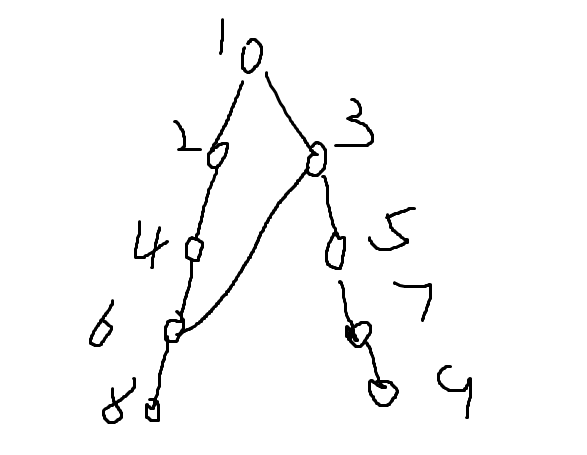 1
2 3
4 5
6 7
8 9